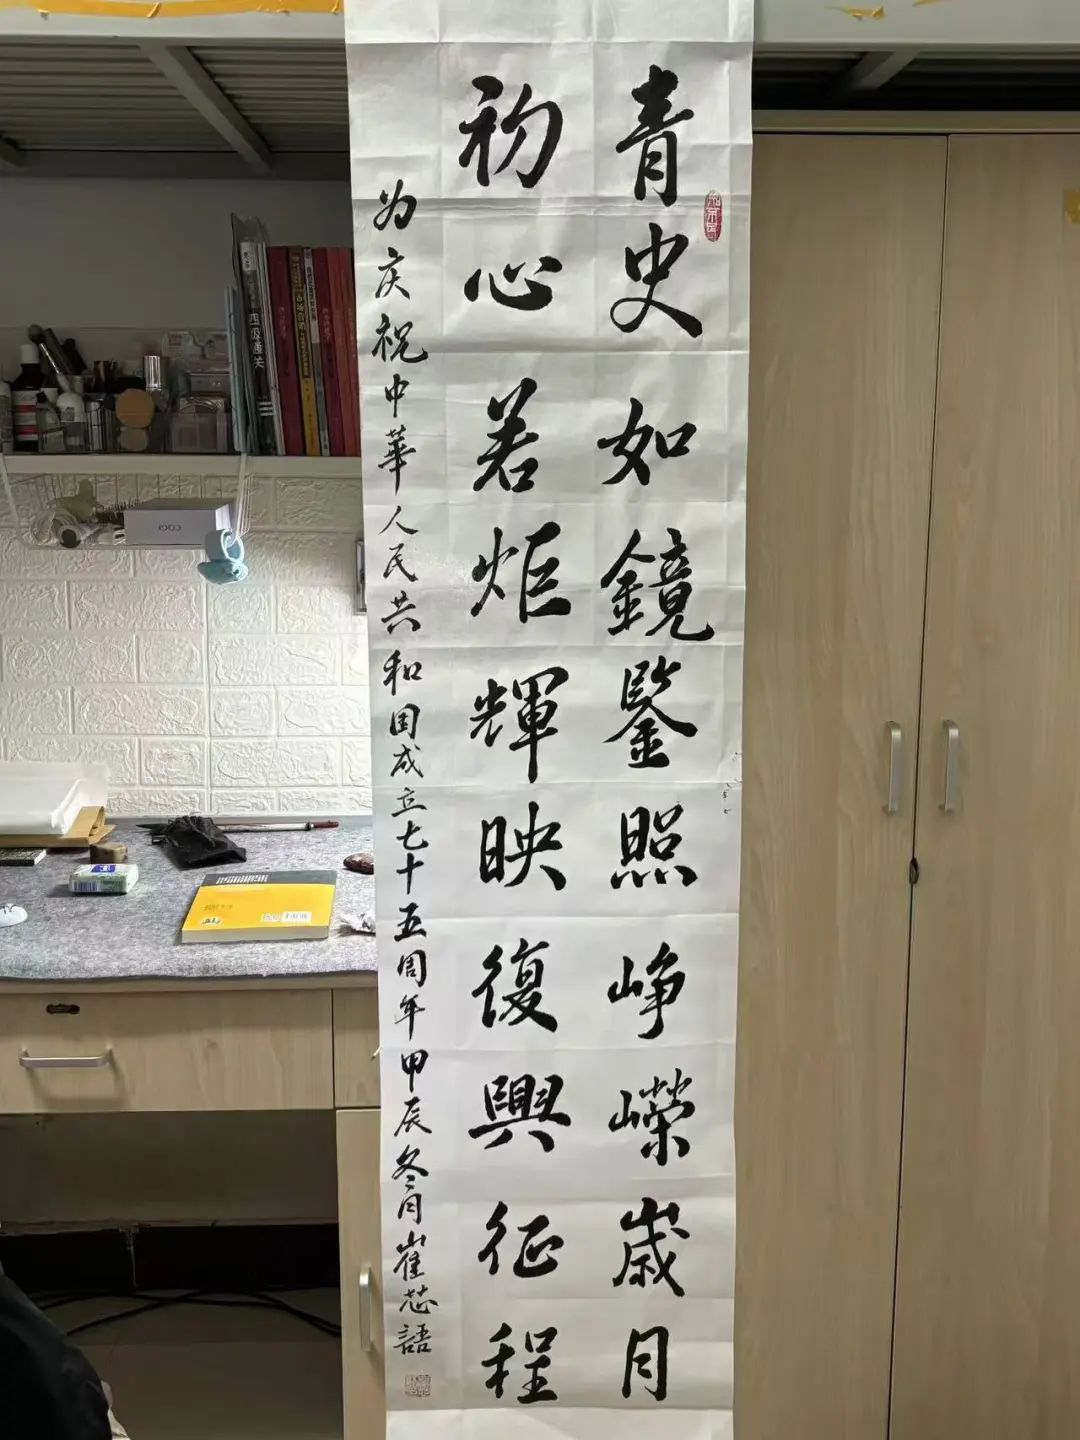 青史如鏡鑒照崢嶸歲月
初心若炬輝映復興征程
为庆祝中華人民共和国成立七十五周年甲辰冬月崔芯語
四级通关
市场营销
iQOO